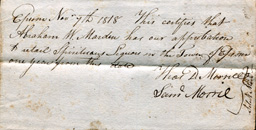 Epsom Nov. 9th 1818 This certifies that
Abraham W. Marden has our approbation
to retail Spirituous Liquors in the Town of Epsom
one year from this date
Thos. D. Morrill
Saml. Morril